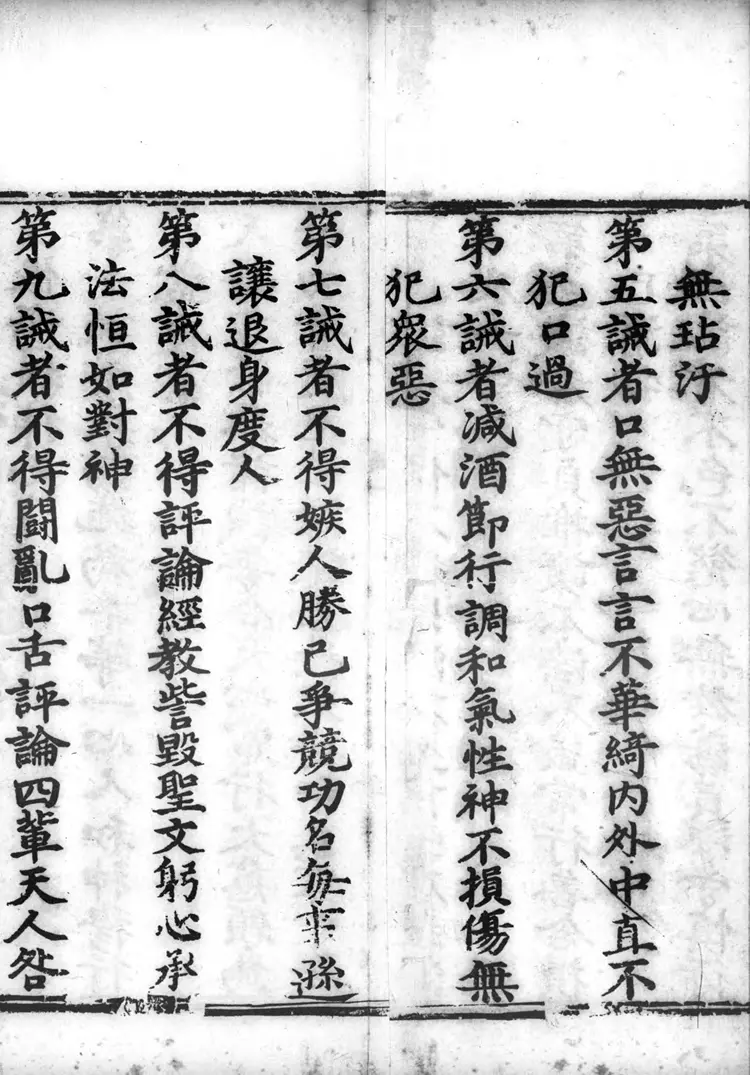 無玷汙
第五誡者口無惡言言不華綺内外中直不
犯口過
第六誡者減酒節行調和氣性神不損傷無
犯衆惡
第七誡者不得嫉人勝己爭競功名每事遜
讓退身度人
第八誡者不得評論經教訾毀聖文躬心承
法恒如對神
第九誡者不得鬪亂口舌評論四輩天人咎